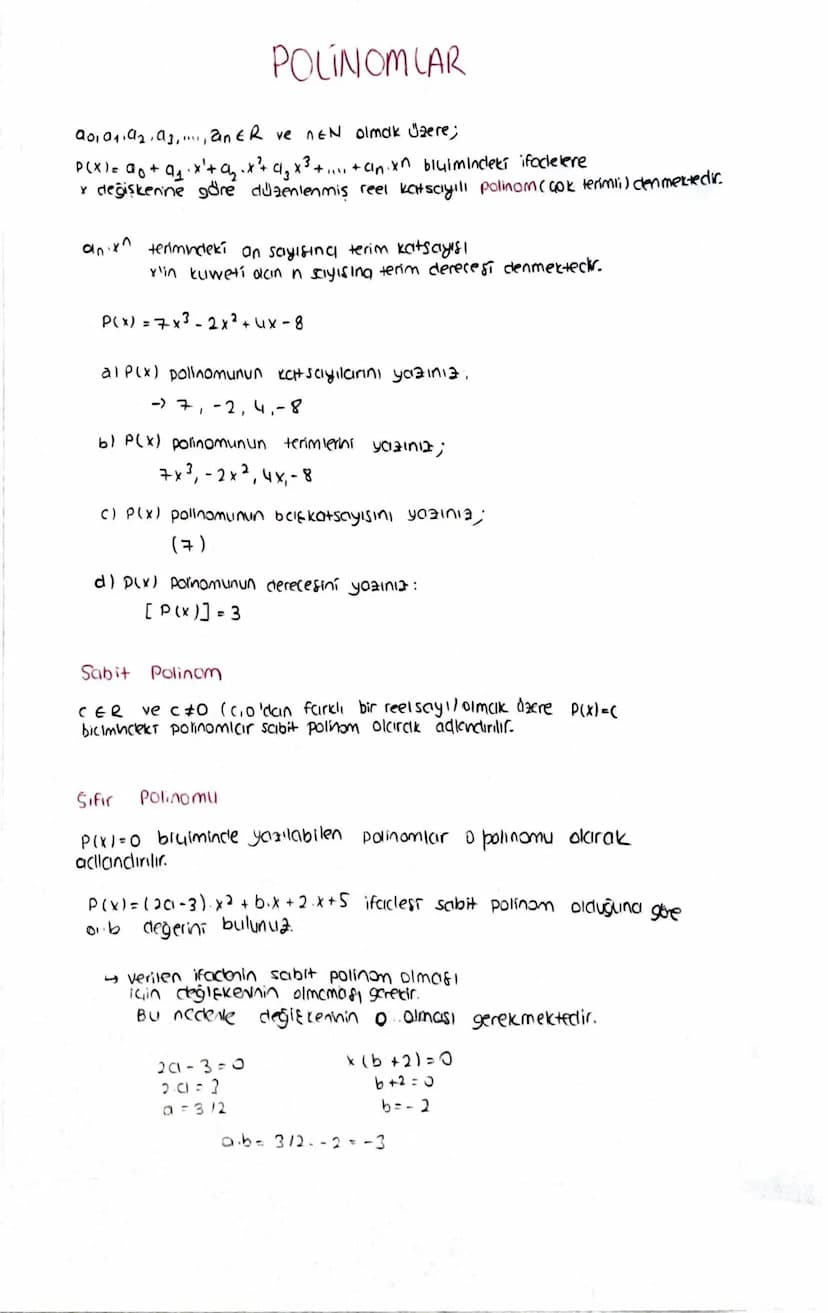 POLİNOMLAR
a0, a1, a2, a3, ...., an ∈ R ve n ∈ N olmak üzere;
P(x) = a0 + a1 . x¹ + a2 . x² + a3 x³ + .... + an . xⁿ biçimindeki ifadelere
x değişkenine göre düzenlenmiş reel katsayılı polinom (çok terimli) denmektedir.
an . xⁿ terimindeki an sayısına terim katsayısı
x'in kuvveti olan n sayısına terim derecesi denmektedir.
P(x) = 7x³ - 2x² + 4x - 8
a) P(x) polinomunun katsayılarını yazınız.
-> 7, -2, 4, -8
b) P(x) polinomunun terimlerini yazınız;
7x³, - 2x², 4x, - 8
c) P(x) polinomunun başkatsayısını yazınız;
(7)
d) P(x) polinomunun derecesini yazınız:
[ P(x)] = 3
Sabit Polinom
c ∈ R ve c ≠ 0 (c, 0'dan farklı bir reel sayı) olmak üzere P(x)=c
biçimindeki polinomlar sabit polinom olarak adlandırılır.
Sıfır Polinomu
P(x)=0 biçiminde yazılabilen polinomlar 0 polinomu olarak
adlandırılır.
P(x) = (2a-3) . x² + b.x + 2.x + 5 ifadesi sabit polinom olduğuna göre
a.b değerini bulunuz.
↳ verilen ifadenin sabit polinom olması
için değişkenin olmaması gerekir.
Bu nedenle değişkenin 0 olması gerekmektedir.
2a - 3 = 0 x (b + 2) = 0
2a = 3 b + 2 = 0
a = 3/2 b = - 2
a.b = 3/2 . - 2 = -3